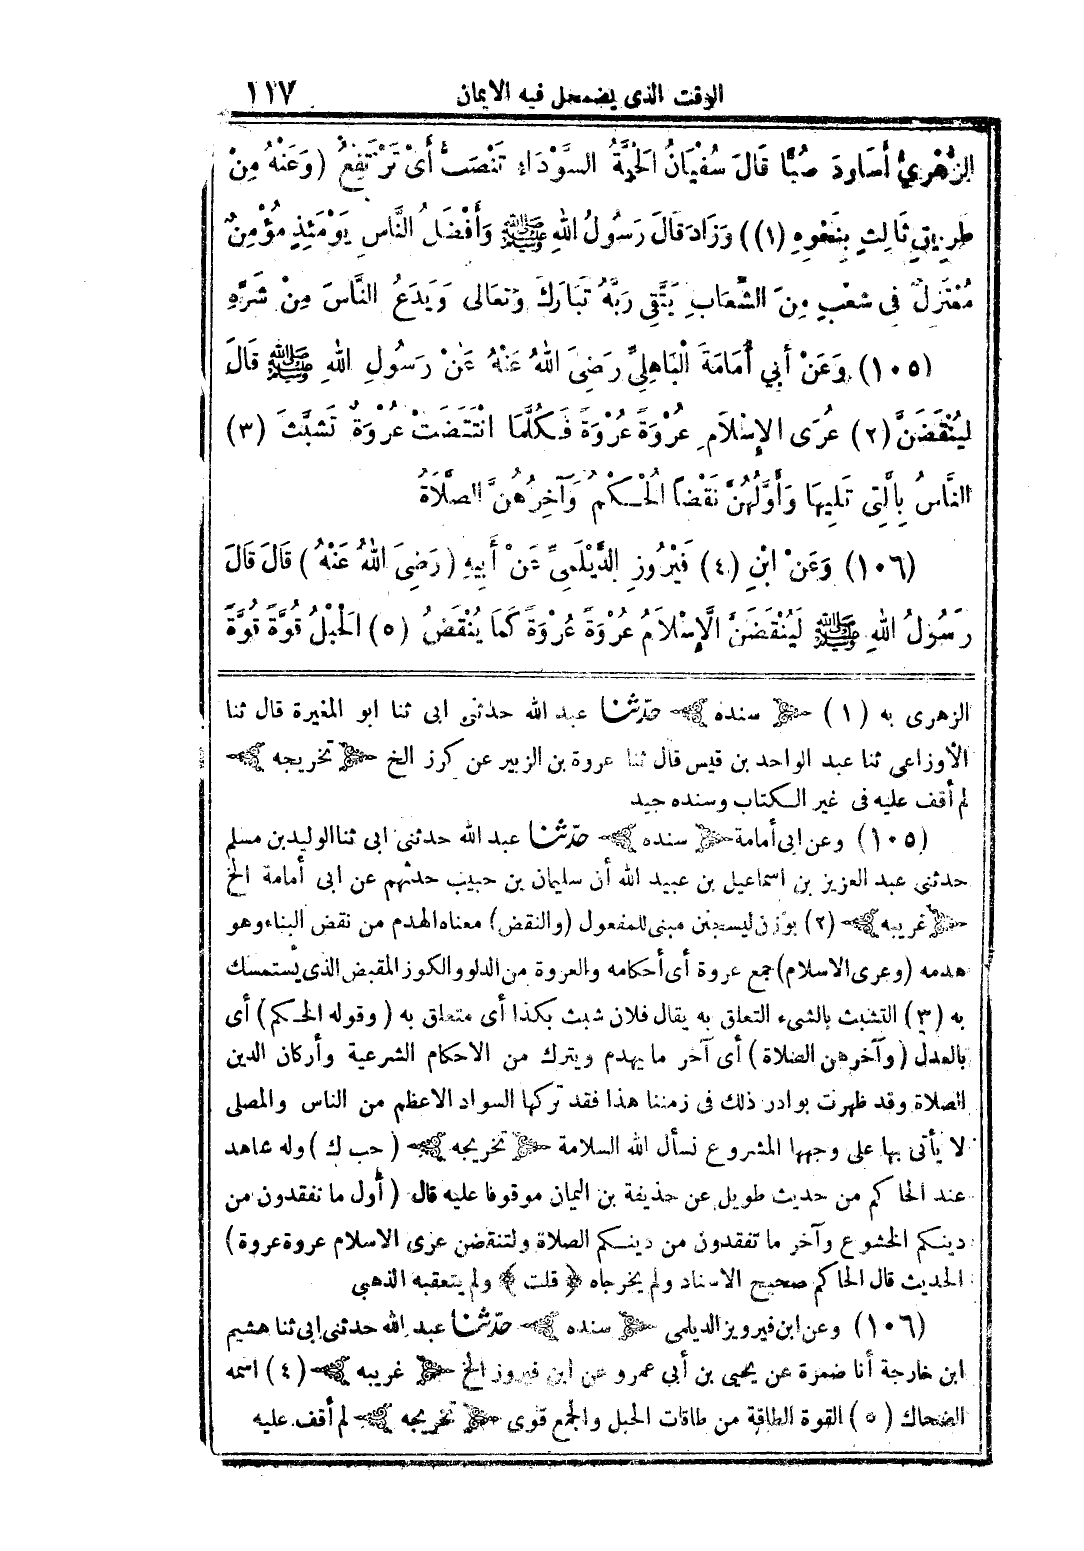 الوقت الذى يضمحل فيه الايمان ١١٧
الزُّهْرِيُّ أَسَاوِدَ صُبًّا قَالَ سُفْيَانُ الْحَيَّةُ السَّوْدَاءُ تَنْصَبُّ أَىْ تَرْتَفِعُ (وَعَنْهُ مِنْ
طَرِيقٍ ثَالِثٍ بِنَحْوِهِ (١)) وَزَادَ قَالَ رَسُولُ اللهِ ﷺ وَأَفْضَلُ النَّاسِ يَوْمَئِذٍ مُؤْمِنٌ
مُعْتَزِلٌ فِى شِعْبٍ مِنَ الشِّعَابِ يَتَّقِى رَبَّهُ تَبَارَكَ وَتَعَالَى وَيَدَعُ النَّاسَ مِنْ شَرِّهِ
(١٠٥) وَعَنْ أَبِي أُمَامَةَ الْبَاهِلِىِّ رَضِىَ اللهُ عَنْهُ عَنْ رَسُولِ اللهِ ﷺ قَالَ
لَيُنْقَضَنَّ (٢) عُرَى الْإِسْلَامِ عُرْوَةً عُرْوَةً فَكُلَّمَا انْتَقَضَتْ عُرْوَةٌ تَشَبَّثَ (٣)
النَّاسُ بِالَّتِى تَلِيهَا وَأَوَّلُهُنَّ نَقْضًا الْحُكْمُ وَآخِرُهُنَّ الصَّلَاةُ
(١٠٦) وَعَنْ ابْنِ (٤) فَيْرُوزِ الدَّيْلَمِىِّ عَنْ أَبِيهِ (رَضِىَ اللهُ عَنْهُ) قَالَ قَالَ
رَسُولُ اللهِ ﷺ لَيُنْقَضَنَّ الْإِسْلَامُ عُرْوَةً عُرْوَةً كَمَا يُنْقَضُ (٥) الْحَبْلُ قُوَّةً قُوَّةً
الزهرى به (١) ﴿ سنده ﴾ حدّثنا عبد الله حدثنى ابى ثنا ابو المغيرة قال ثنا
الأوزاعى ثنا عبد الواحد بن قيس قال ثنا عروة بن الزبير عن كرز الخ ﴿ تخريجه ﴾
لم أقف عليه فى غير الكتاب وسنده جيد
(١٠٥) وعن ابى أمامة ﴿ سنده ﴾ حدّثنا عبد الله حدثنى ابى ثنا الوليد بن مسلم
حدثنى عبد العزيز بن اسماعيل بن عبيد الله أن سليمان بن حبيب حدثهم عن ابى أمامة الخ
﴿ غريبه ﴾ (٢) بوزن ليسجنن مبنى للمفعول (والنقض) معناه الهدم من نقض البناء وهو
هدمه (وعرى الاسلام) جمع عروة أى أحكامه والعروة من الدلو والكوز المقبض الذى يستمسك
به (٣) التشبث بالشىء التعلق به يقال فلان شبث بكذا أى متعلق به (وقوله الحكم) أى
بالعدل (وآخرهن الصلاة) أى آخر ما يهدم ويترك من الاحكام الشرعية وأركان الدين
الصلاة وقد ظهرت بوادر ذلك فى زمننا هذا فقد تركها السواد الاعظم من الناس والمصلى
لا يأتى بها على وجهها المشروع نسأل الله السلامة ﴿ تخريجه ﴾ (حب ك) وله شاهد
عند الحاكم من حديث طويل عن حذيفة بن اليمان موقوفا عليه قال (أول ما تفقدون من
دينكم الخشوع وآخر ما تفقدون من دينكم الصلاة ولتنقضن عرى الاسلام عروة عروة)
الحديث قال الحاكم صحيح الاسناد ولم يخرجاه ﴿ قلت ﴾ ولم يتعقبه الذهبى
(١٠٦) وعن ابن فيروز الديلمى ﴿ سنده ﴾ حدّثنا عبد الله حدثنى ابى ثنا هشيم
ابن خارجة أنا ضمرة عن يحيى بن أبي عمرو عن ابن فيروز الخ ﴿ غريبه ﴾ (٤) اسمه
الضحاك (٥) القوة الطاقة من طاقات الحبل والجمع قوى ﴿ تخريجه ﴾ لم أقف عليه